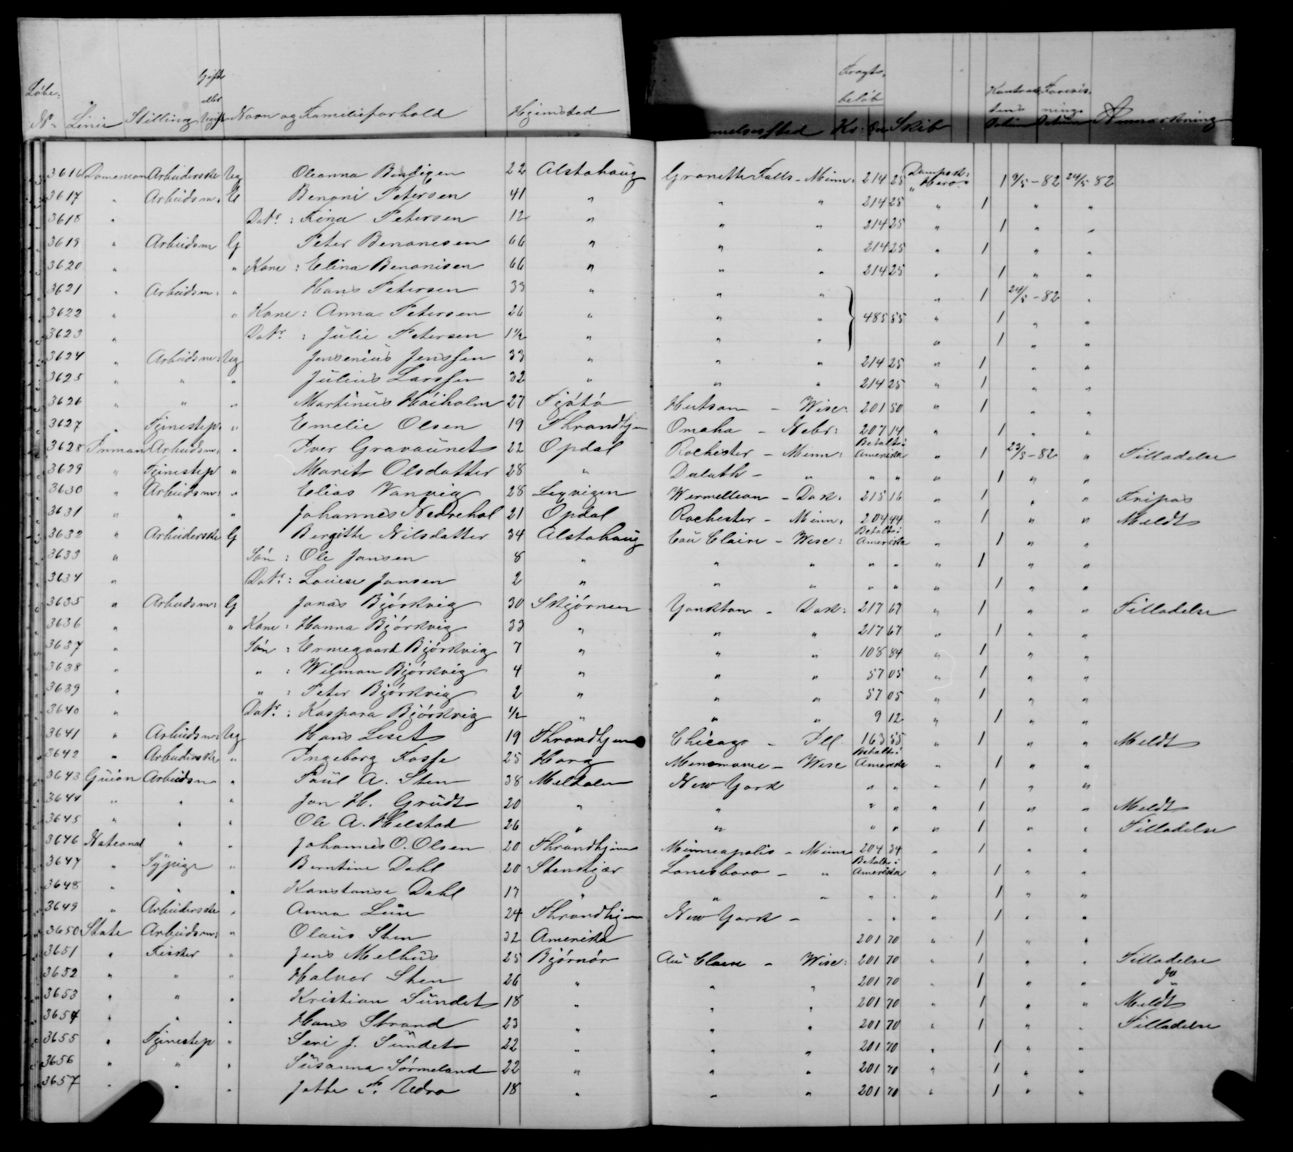 Løbe- Gifte Fragt- Kontrak- Forevis-
eller beløb tens nings-
No Linie Stilling Ugift Navn og Familieforhold Hjemsted melsessted Kr. Øre Skib Datum Datum Anmærkning
3616 Dominion Arbeiderske Ug Oleanna Bendigen 22 Alstahaug Granette Falls - Minn: 214 25 Dampsk: Hero 1 9/5 - 82 24/5 82
3617 " Arbeidsm. U Benoni Petersen 41 " " " 214 25 " 1 " "
3618 " Datr: Lina Petersen 12 " " " 214 25 " 1 " "
3619 " Arbeidsm G Peter Benonisen 66 " " " 214 25 " 1 " "
3620 " " Kone: Elina Benonisen 66 " " " 214 25 " 1 " "
3621 " Arbeidsm: " Hans Petersen 33 " " " " 1 24/5 - 82 "
3622 " " Kone: Anna Petersen 26 " " " 485 55 " 1 " "
3623 " Datr: Julie Petersen 1½ " " " " 1 " "
3624 " Arbeidsm: Ug Jensenius Jenssen 33 " " " 214 25 " 1 " "
3625 " " " Julius Larssen 32 " " " 214 25 " 1 " "
3626 " " " Martinus Høiholm 27 Tjøtø Hutson - Wisc: 201 50 " 1 " "
3627 " Tjenestep: " Emelie Olsen 19 Throndhjem Omaha - Nebr: 207 14 " 1 " "
3628 Inman Arbeidsm: " Iver Gravaunet 22 Opdal Rochester - Minn: Betalt i Amerika " 1 23/5 - 82 " Tilladelse
3629 " Tjenestep " Marit Olsdatter 28 " Duluth - " " " " 1 " "
3630 " Arbeidsm: " Elias Vanvig 28 Lexvigen - Dak: 215 16 " 1 " " Fripas
3631 " " " Johannes Nedrehol 21 Opdal Rochester - Minn: 204 44 " 1 " " Meldt
3632 " Arbeiderske G Bergitte Nilsdatter 34 Alstahaug Eau Claire - Wisc: Betalt i Amerika " 1 " "
3633 " Søn: Ole Jansen 8 " " " " " " 1 " "
3634 " Datr: Louise Jansen 2 " " " " " " 1 " "
3635 " Arbeidsm: G Jonas Bjørkvig 30 Skjørnen Yankton - Dak: 217 67 " 1 " " Tilladelse
3636 " " Kone: Hanna Bjørkvig 33 " " " 217 67 " 1 " "
3637 " Søn: Ermegaard Bjørkvig 7 " " " 108 84 " 1 " "
3638 " ": Wilman Bjørkvig 4 " " " 57 05 " 1 " "
3639 " ": Peter Bjørkvig 2 " " " 57 05 " 1 " "
3640 " Datr: Kaspara Bjørkvig ½ " " " 9 12 " 1 " "
3641 " Arbeidsm: Ug Hans Leset 19 Throndhjem Chicago - Ill 163 55 " 1 " " Meldt
3642 " Arbeiderske " Ingeborg Fosse 25 Horg Menomonie - Wisc Betalt i Amerika " 1 " "
3643 Guion Arbeidsm " Paul A. Sten 38 Melhalen New York " " " 1 " "
3644 " " " Jon H. Grudt 20 " " " " " 1 " " Meldt
3645 " " " Ole A. Helstad 26 " " " " " 1 " " Tilladelse
3646 National " " Johannes O. Olsen 20 Throndhjem Minneapolis - Minn 204 34 " 1 " "
3647 " Sypige " Berntine Dahl 20 Stenkjær Lanesboro - " Betalt i Amerika " 1 " "
3648 " " " Konstanse Dahl 17 " " " " " " 1 " "
3649 " Arbeiderske " Anna Lein 24 Throndhjem New York - " " " 1 " "
3650 State Arbeidsm: " Olaus Sten 32 Amerika 201 70 " 1 " "
3651 " Fisker " Jens Melhus 25 Bjørnør Au Claire - Wisc: 201 70 " 1 " " Tilladelse
3652 " " " Halvor Sten 26 " " " 201 70 " 1 " " Do
3653 " " " Kristian Sundet 18 " " " 201 70 " 1 " " Meldt
3654 " " " Hans Strand 23 " " " 201 70 " 1 " " Tilladelse
3655 " Tjenestep " Seri J. Sundet 22 " " " 201 70 " 1 " "
3656 " " " Susanna Sørmeland 22 " " " 201 70 " 1 " "
3657 " " " Jette F. Udro 18 " " " 201 70 " 1 " "